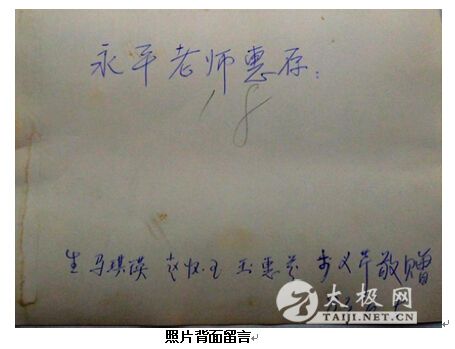 永平老师惠存:
18
生马琪瑛 赵 王惠兰 步义芹敬赠
太极网
TAIJI.NET.CN
照片背面留言